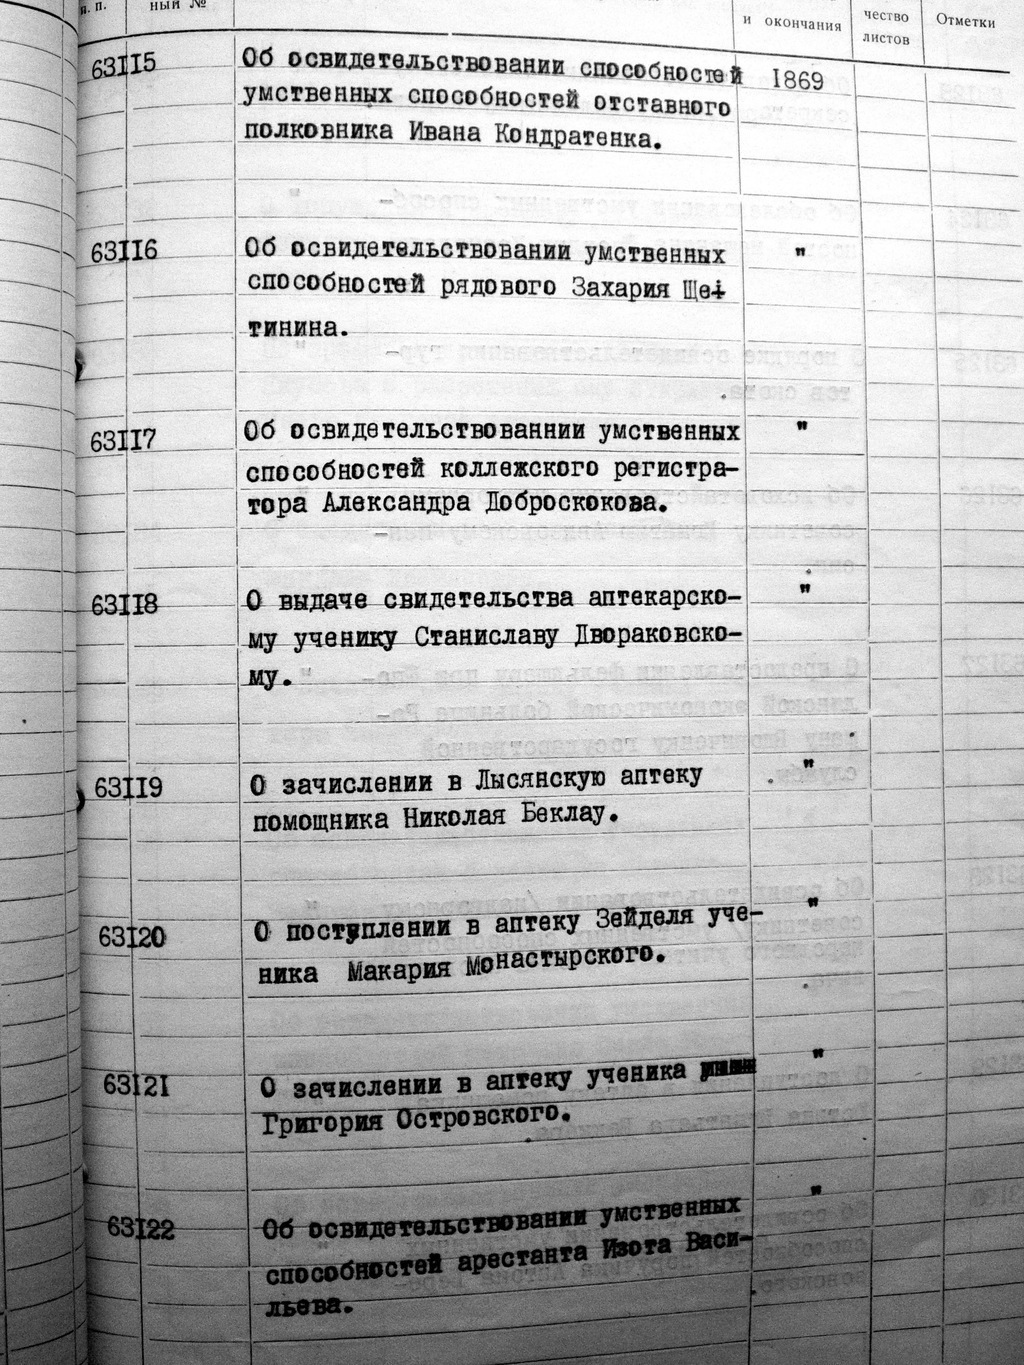 п. п.
ный №
и окончания
чество
листов
Отметки
63115
Об освидетельствовании способностей
1869
умственных способностей отставного
полковника Ивана Кондратенка.
63116
Об освидетельствовании умственных
"
способностей рядового Захария Ще-
тинина.
63117
Об освидетельствованнии умственных
"
способностей коллежского регистра-
тора Александра Доброскокова.
63118
О выдаче свидетельства аптекарско-
"
му ученику Станиславу Двораковско-
му.
63119
О зачислении в Лысянскую аптеку
"
помощника Николая Беклау.
63120
О поступлении в аптеку Зейделя уче-
"
ника Макария Монастырского.
63121
О зачислении в аптеку ученика
"
Григория Островского.
63122
Об освидетельствовании умственных
"
способностей арестанта Изота Васи-
льева.